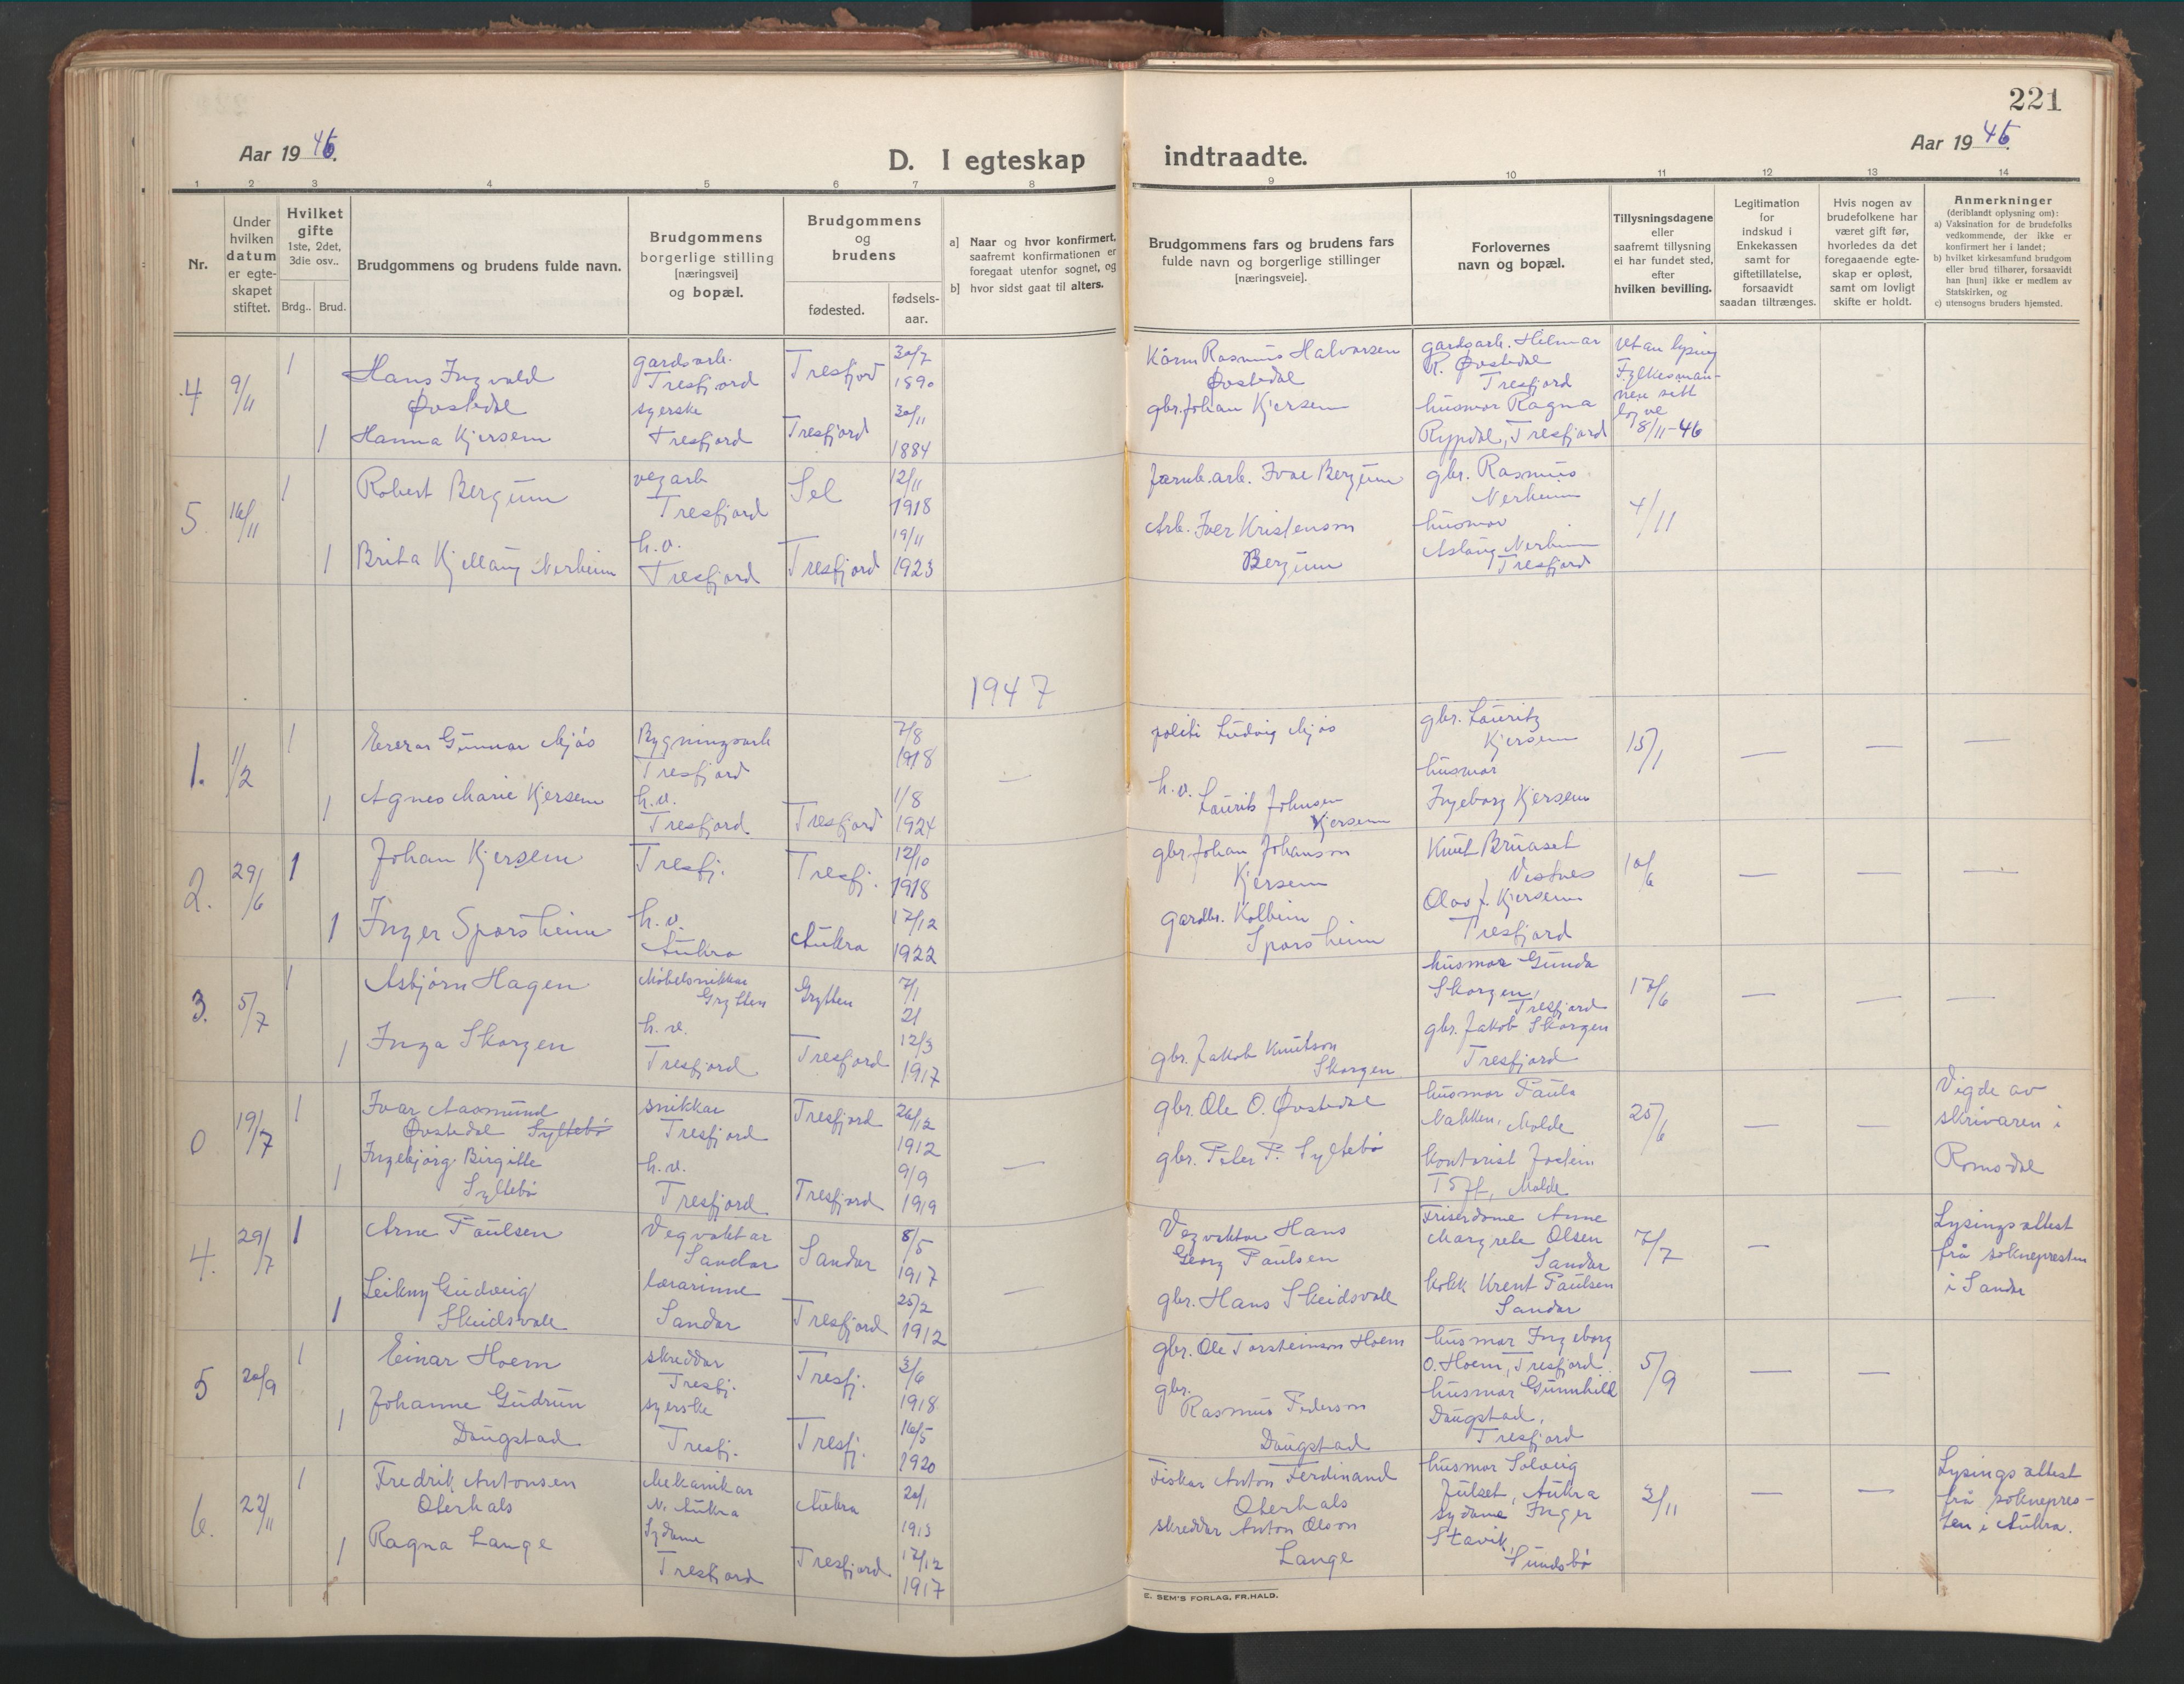 221
Aar 1946.
D. I egteskap indtraadte.
Aar 1946.
1 2 3 4 5 6 7 8 9 10 11 12 13 14
Nr.
Under hvilken datum er egteskapet stiftet.
Hvilket gifte
1ste, 2det, 3die osv..
Brdg.. Brud.
Brudgommens og brudens fulde navn.
Brudgommens borgerlige stilling [næringsvei] og bopæl.
Brudgommens og brudens
fødested. fødsels-aar.
a] Naar og hvor konfirmert, saafremt konfirmationen er foregaat utenfor sognet, og
b] hvor sidst gaat til alters.
Brudgommens fars og brudens fars fulde navn og borgerlige stillinger [næringsveie].
Forlovernes navn og bopæl.
Tillysningsdagene eller saafremt tillysning ei har fundet sted, efter hvilken bevilling.
Legitimation for indskud i Enkekassen samt for giftetillatelse, forsaavidt saadan tiltrænges.
Hvis nogen av brudefolkene har været gift før, hvorledes da det foregaaende egteskap er opløst, samt om lovligt skifte er holdt.
Anmerkninger
(deriblandt oplysning om):
a) Vaksination for de brudefolks vedkommende, der ikke er konfirmert her i landet;
b) hvilket kirkesamfund brudgom eller brud tilhører, forsaavidt han [hun] ikke er medlem av Statskirken, og
c) utensogns bruders hjemsted.
4 9/11 1 Hans Ingvald Øvstedal gardsarb. Tresfjord Tresfjord 30/7 1890
1 Hanna Kjersem syerske Tresfjord Tresfjord 30/11 1884
Rasmus Halvorsen Øvstedal
gbr. Johan Kjersem
gardsarb. Hilmar R. Øvstedal Tresfjord
husmor Ragna Rypdal, Tresfjord
Utan lysing Fylkesmannen sitt løyve 8/11-46
5. 16/11 1 Robert Bergum vegarb Tresfjord Sel 12/11 1918
1 Brita Kjellaug Nerheim h.v. Tresfjord Tresfjord 19/11 1923
Jærnb.arb. Ivar Bergum
Arb. Iver Kristenson Bergum
gbr. Rasmus Nerheim
husmor Aslaug Nerheim Tresfjord
4/11
1947
1. 1/2 1 Gunnar Mjøs Bygningsarb Tresfjord 7/8 1918
1 Agnes Marie Kjersem h.v. Tresfjord. Tresfjord 1/8 1924
politi Ludvig Mjøs
h.v. Laurits Johnsen Kjersem
gbr. Lauritz Kjersem
husmor Ingeborg Kjersem
15/1 — — —
2. 29/6 1 Johan Kjersem Tresfj. Tresfj. 12/10 1918
1 Inger Sporsheim h.v. Aukra Aukra 17/12 1922
gbr. Johan Johanson Kjersem
gardbr. Kolbein Sporsheim
Knut Bruaset Vestnes
Olav J. Kjersem Tresfjord
10/6 — — —
3. 5/7 1 Asbjørn Hagen Møbelsnikkar Grytten Grytten 7/1 21
1 Inga Skorgen h.v. Tresfjord Tresfjord 12/3 1917
gbr. Jakob Knutson Skorgen
husmor Gunda Skorgen, Tresfjord
gbr. Jakob Skorgen Tresfjord
17/6 — — —
0 19/7 1 Ivar Aasmund Øvstedal Syltebø snikkar Tresfjord Tresfjord 26/12 1912
1 Ingebjørg Birgitte Syltebø h.v. Tresfjord Tresfjord 9/9 1919
gbr. Ole O. Øvstedal
gbr. Peter P. Syltebø
husmor Paula Nakken, Molde
kontorist Jostein Toft, Molde
25/6 — —
Vigde av skrivaren i Romsdal
4. 29/7 1 Arne Paulsen Vegvaktar Sandar Sandar 8/5 1917
1 Leikny Gudveig Skeidsvoll lærarinne Sandar Tresfjord 25/2 1912
Vegvaktar Hans Georg Paulsen
gbr. Hans Skeidsvoll
Friserdame Anne Margrete Olsen Sandar
kokk Krent Paulsen Sandar
7/7 —
Lysingsattest frå soknepresten i Sandar
5 20/9 1 Einar Hoem skreddar Tresfj. Tresfj. 3/6 1918
1 Johanne Gudrun Daugstad syerske Tresfj. Tresfj. 16/5 1920
gbr. Ole Torsteinson Hoem
gbr. Rasmus Pederson Daugstad
husmor Ingeborg O. Hoem, Tresfjord.
husmor Gunnhild Daugstad, Tresfjord
5/9 — —
6. 22/11 1 Fredrik Antonsen Oterhals Mekanikar N. Aukra Aukra 20/1 1913
1 Ragna Lange Sydame Tresfjord Tresfjord 17/12 1917
Fiskar Anton Ferdinand Oterhals
skreddar Anton Olson Lange
husmor Solveig Julset, Aukra
sydame Inger Stavik, Sundsbø
3/11 — —
Lysingsattest frå soknepresten i Aukra.
E. SEM'S FORLAG, FR.HALD.